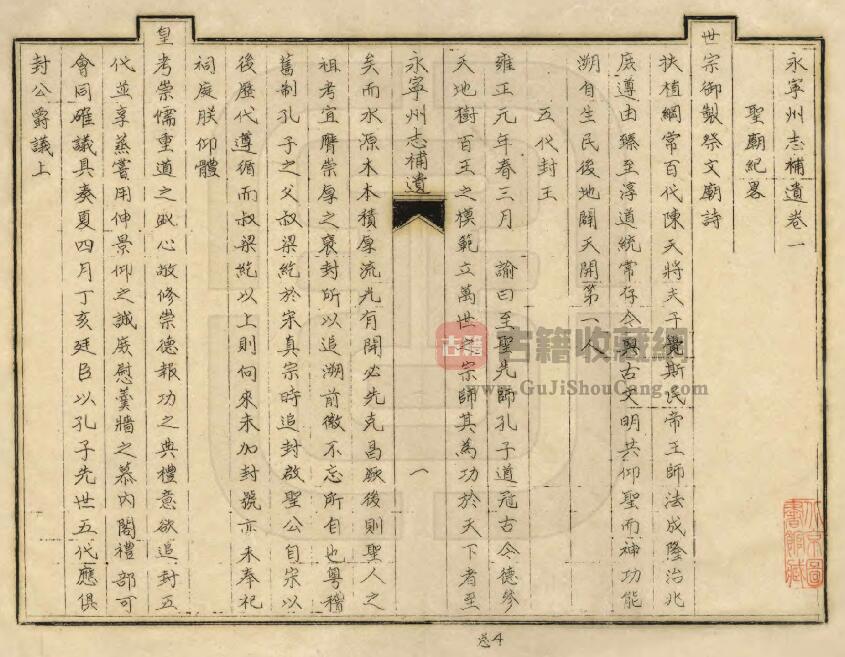 永寧州志補遺卷一
聖廟紀畧
世宗御製祭文廟詩
扶植綱常百代陳天將夫子覺斯民帝王師法成隆治兆
庶遵由臻至淳道統常存今與古文明共仰聖而神功能
溯自生民後地闢天開第一人
五代封王
雍正元年春三月 諭曰至聖先師孔子道冠古今德參
天地樹百王之模範立萬世之宗師其為功於天下者至
永寧州志補遺 一
矣而水源木本積厚流光有開必先克昌厥後則聖人之
祖考宜膺崇厚之襃封所以追溯前徽不忘所自也粤稽
舊制孔子之父叔梁紇於宋真宗時追封啟聖公自宋以
後歷代遵循而叔梁紇以上則向來未加封號亦未奉祀
祠庭朕仰體
皇考崇儒重道之盛心敬修崇德報功之典禮意欲追封五
代並享蒸嘗用伸景仰之誠庶慰羹牆之慕內閣禮部可
會同確議具奏夏四月丁亥廷臣以孔子先世五代應俱
封公爵議上
古籍 古籍收藏網
www.GuJiShouCang.com
北京圖書館藏
总4